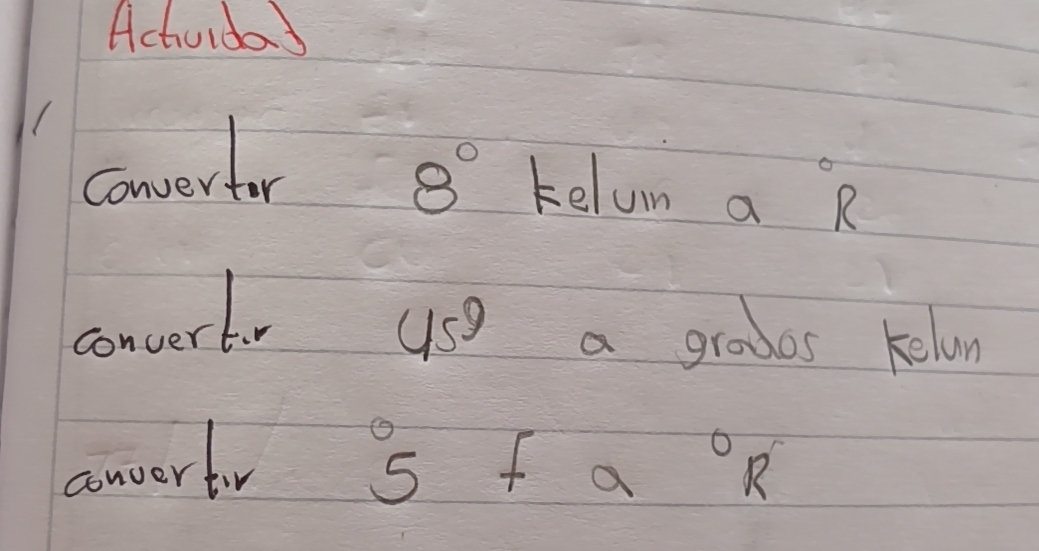 Actividad
Convertir 8° kelvin a °R
convertir 45° a grados kelvin
convertir 5° f a °R